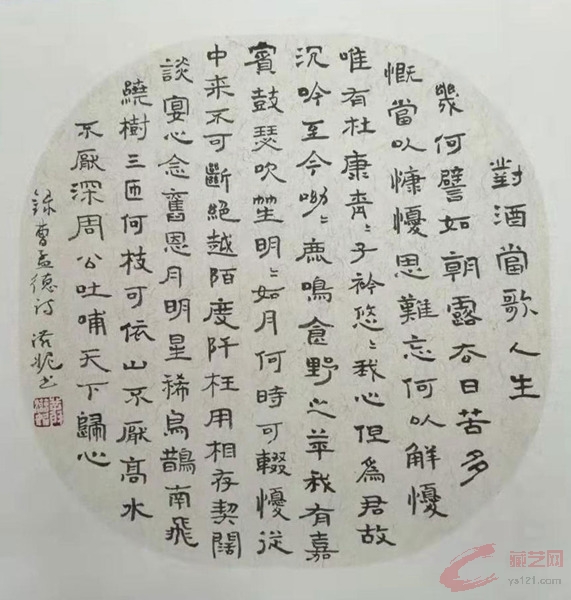 對酒當歌人生
幾何譬如朝露去日苦多
慨當以慷懮思難忘何以解懮
唯有杜康青〻子衿悠〻我心但為君故
沉吟至今呦〻鹿鳴食野之苹我有嘉
賓鼓瑟吹笙明〻如月何時可輟懮從
中来不可斷絕越陌度阡枉用相存契闊
談宴心念舊恩月明星稀烏鵲南飛
繞樹三匝何枝可依山不厭高水
不厭深周公吐哺天下歸心
錄曹孟德詩
藏艺网
ys121.com